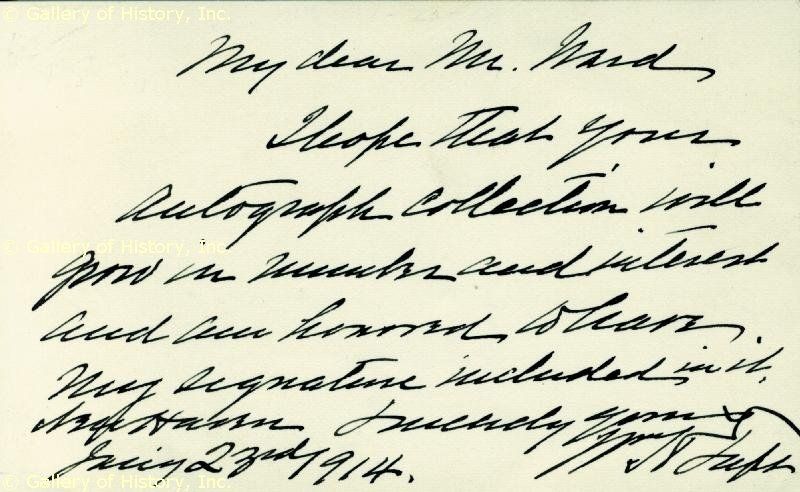 © Gallery of History, Inc.
My dear Mr. Ward
I hope that your
autograph collection will
© Gallery of History, Inc.
grow in number and interest
and am honored to have
my signature included in it.
New Haven Sincerely yours
Jany 23rd 1914. Wm H Taft
© Gallery of History, Inc.